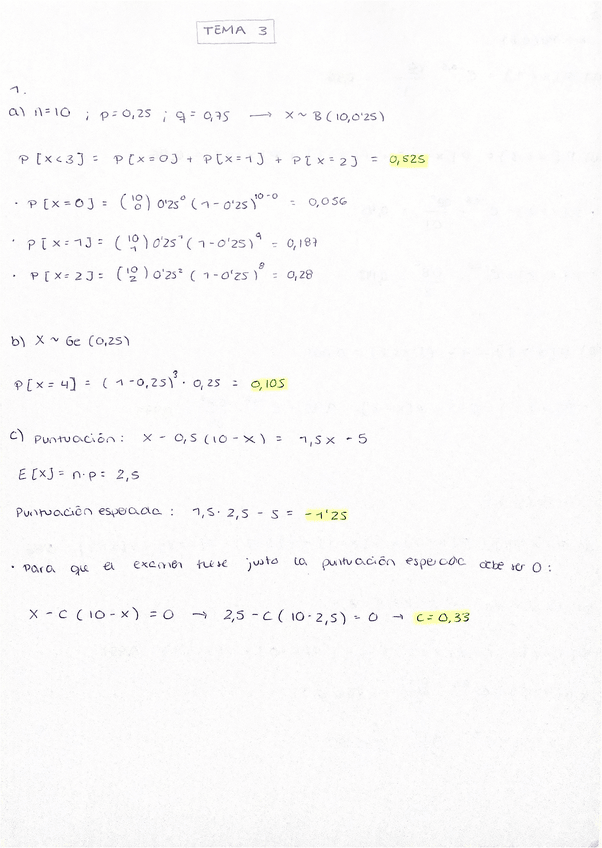 TEMA 3
1.
a) n=10 ; p=0,25 ; q=0,75 → X ~ B(10,0'25)
P[X<3] = P[X=0] + P[X=1] + P[X=2] = 0,525
· P[X=0] = (10 0) 0'25⁰ (1-0'25)¹⁰⁻⁰ = 0,056
· P[X=1] = (10 1) 0'25¹ (1-0'25)⁹ = 0,187
· P[X=2] = (10 2) 0'25² (1-0'25)⁸ = 0,28
b) X ~ Ge (0,25)
P[X=4] = (1-0,25)³ · 0,25 = 0,105
c) Puntuación: X - 0,5 (10-X) = 1,5X - 5
E[X] = n·p = 2,5
Puntuación esperada: 1,5 · 2,5 - 5 = -1'25
· Para que el examen fuese justo la puntuación esperada debe ser 0:
X - C (10-X) = 0 → 2,5 - C (10-2,5) = 0 → C = 0,33